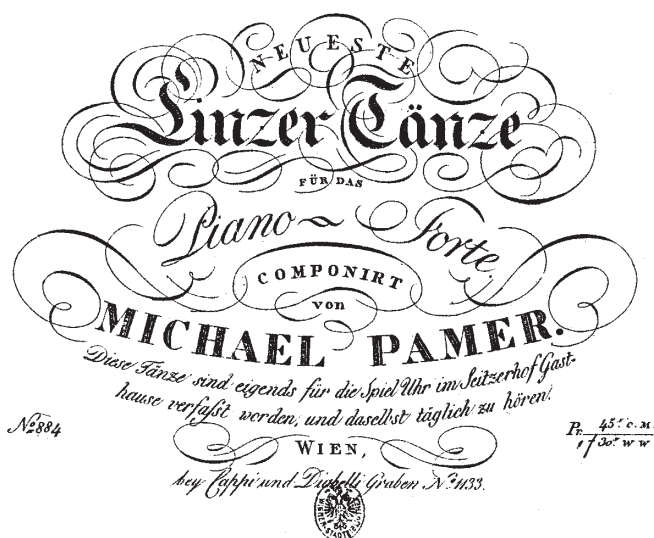 NEUESTE
Linzer Tänze
FÜR DAS
Piano-Forte
COMPONIRT
von
MICHAEL PAMER.
Diese Tänze sind eigends für die Spiel Uhr im Seitzerhof Gast-
hause verfasst worden, und daselbst täglich zu hören.
Nº 884
Pr. 45ˣ c. M.
1 f 30ˣ W W
WIEN,
bey Cappi und Diabelli Graben Nº 1133.